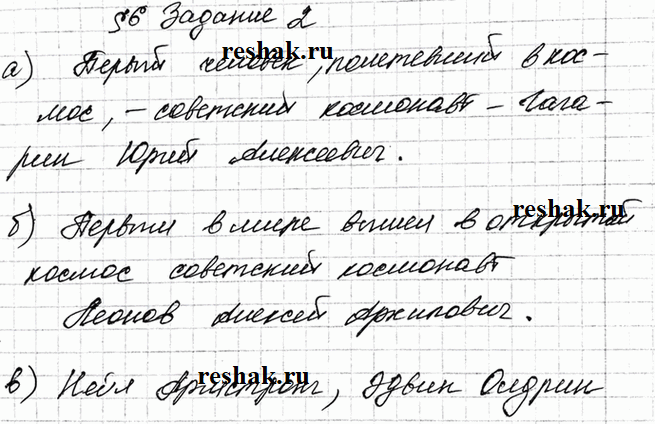 §6 Задание 2
reshak.ru
а) Перый человек, полетевший в кос-
мос, – советский космонавт – Гага-
рин Юрий Алексеевич.
reshak.ru
б) Первым в мире вышел в открытый
космос советский космонавт
Леонов Алексей Архипович.
reshak.ru
в) Нейл Армстронг, Эдвин Олдрин